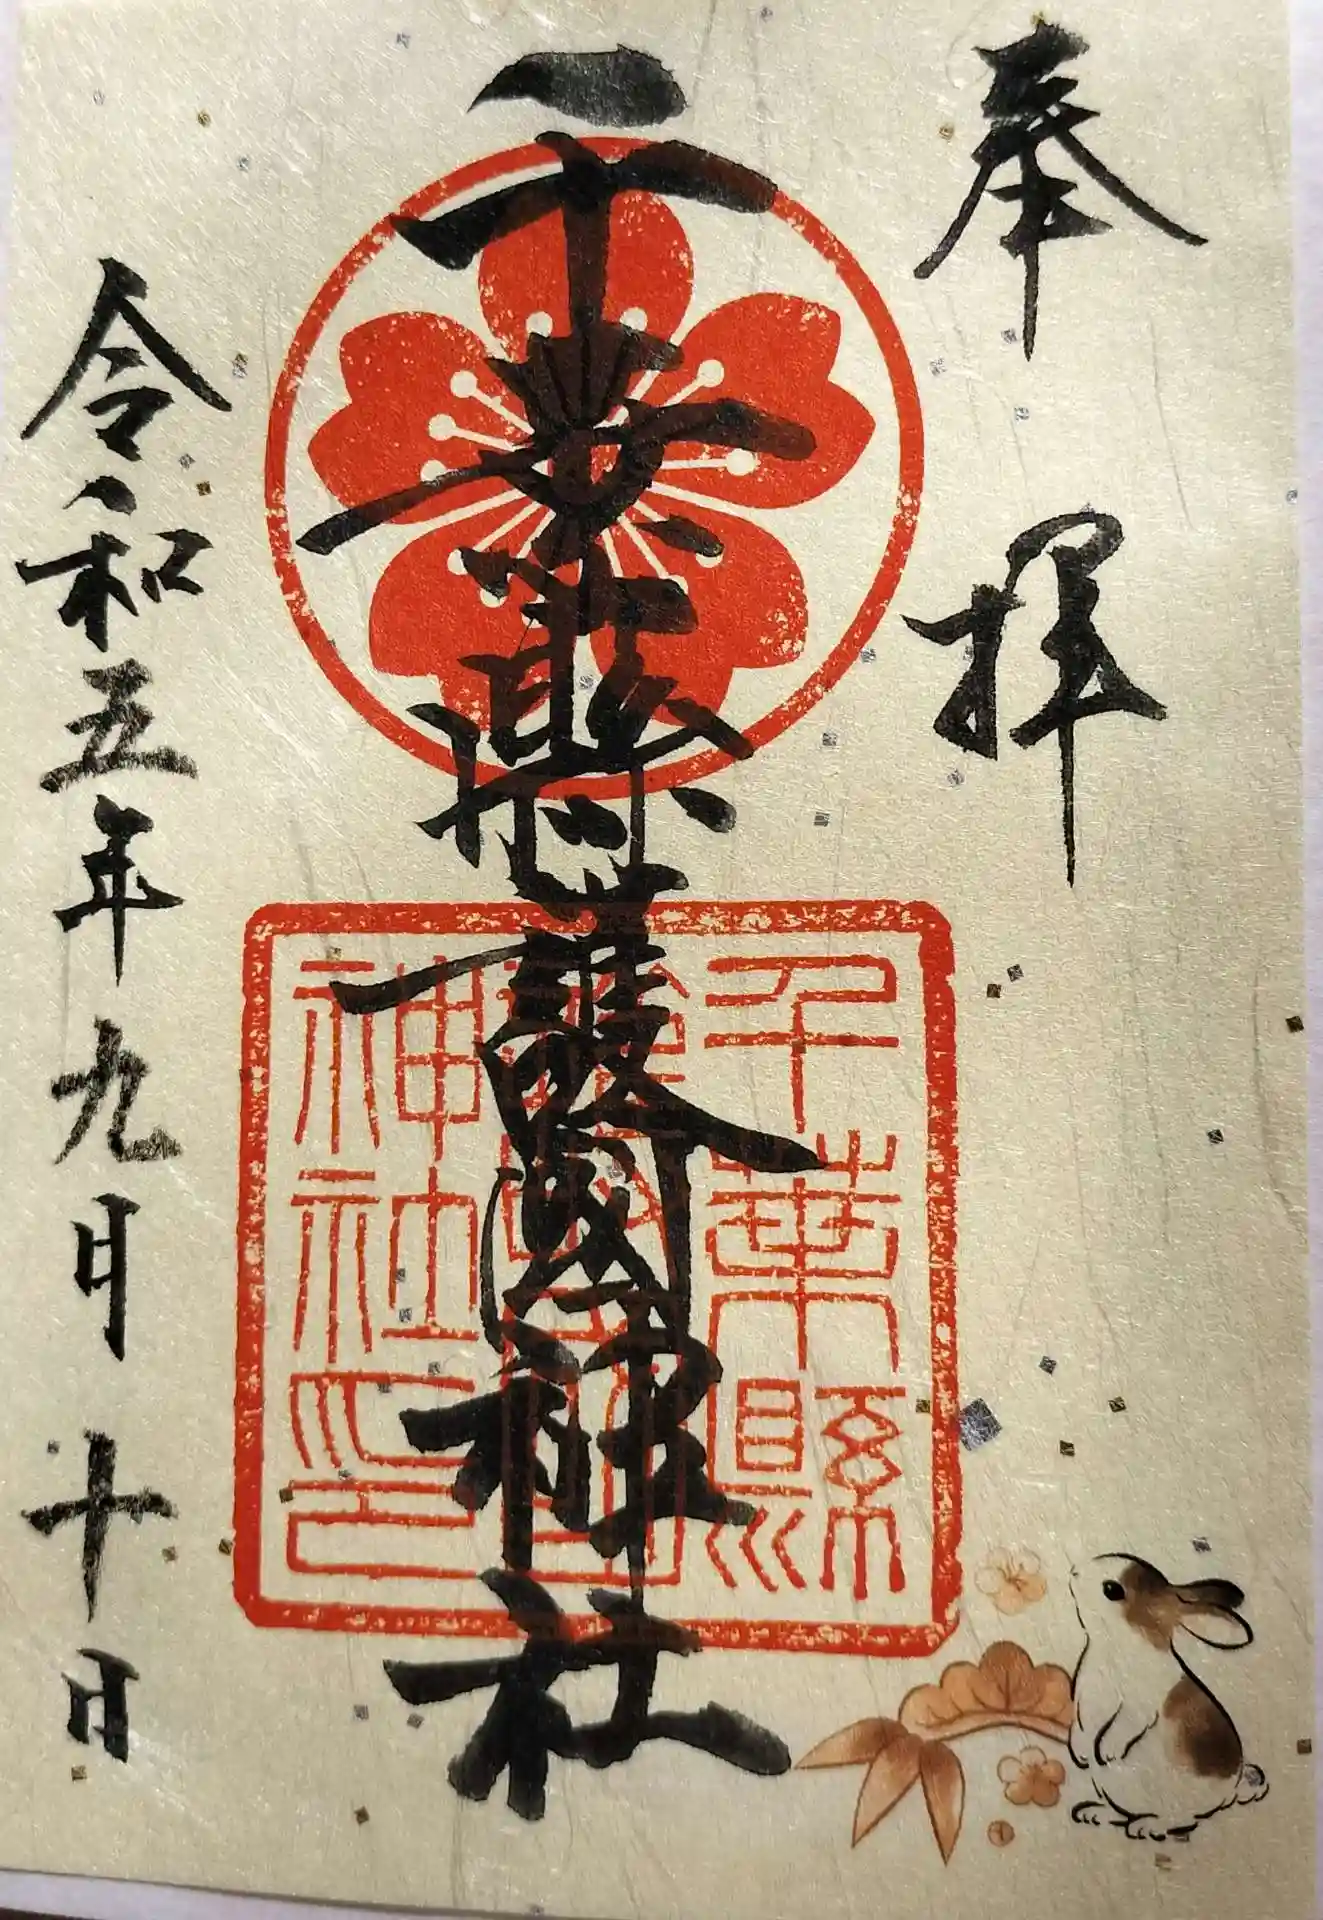 奉拝
千葉縣護國神社
千葉縣
護國
神社之印
令和五年九月十日